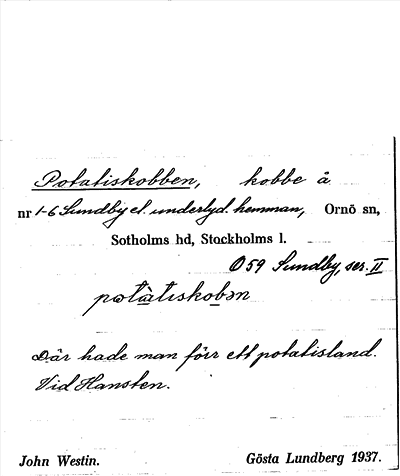 Potatiskobben, kobbe å
nr 1-6 Sundby el. underlyd. hemman, Ornö sn,
Sotholms hd, Stockholms l.
Ö 59 Sundby, ser. II
potàtiskobən
Där hade man förr ett potatisland.
Vid Hansten.
John Westin. Gösta Lundberg 1937.